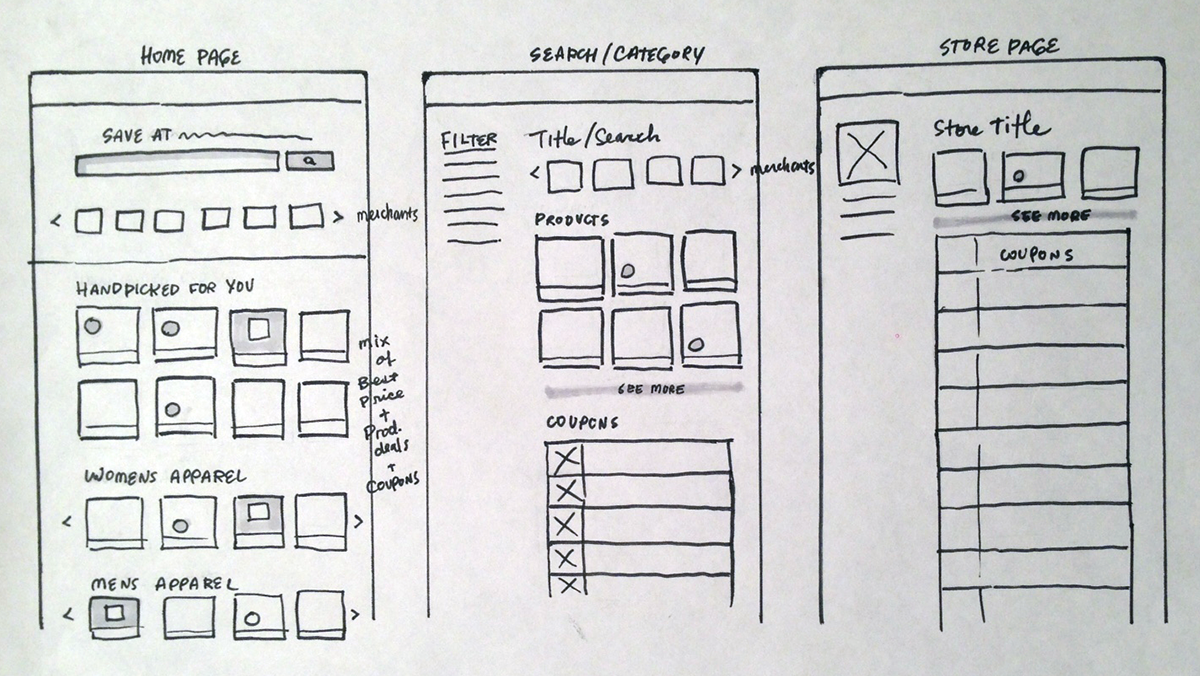 HOME PAGE
SAVE AT
merchants
HANDPICKED FOR YOU
mix
of
Best
Price
+
Prod.
deals
+
COUPONS
WOMENS APPAREL
MENS APPAREL
SEARCH/CATEGORY
FILTER
Title/Search
merchants
PRODUCTS
SEE MORE
COUPONS
STORE PAGE
Store Title
SEE MORE
COUPONS